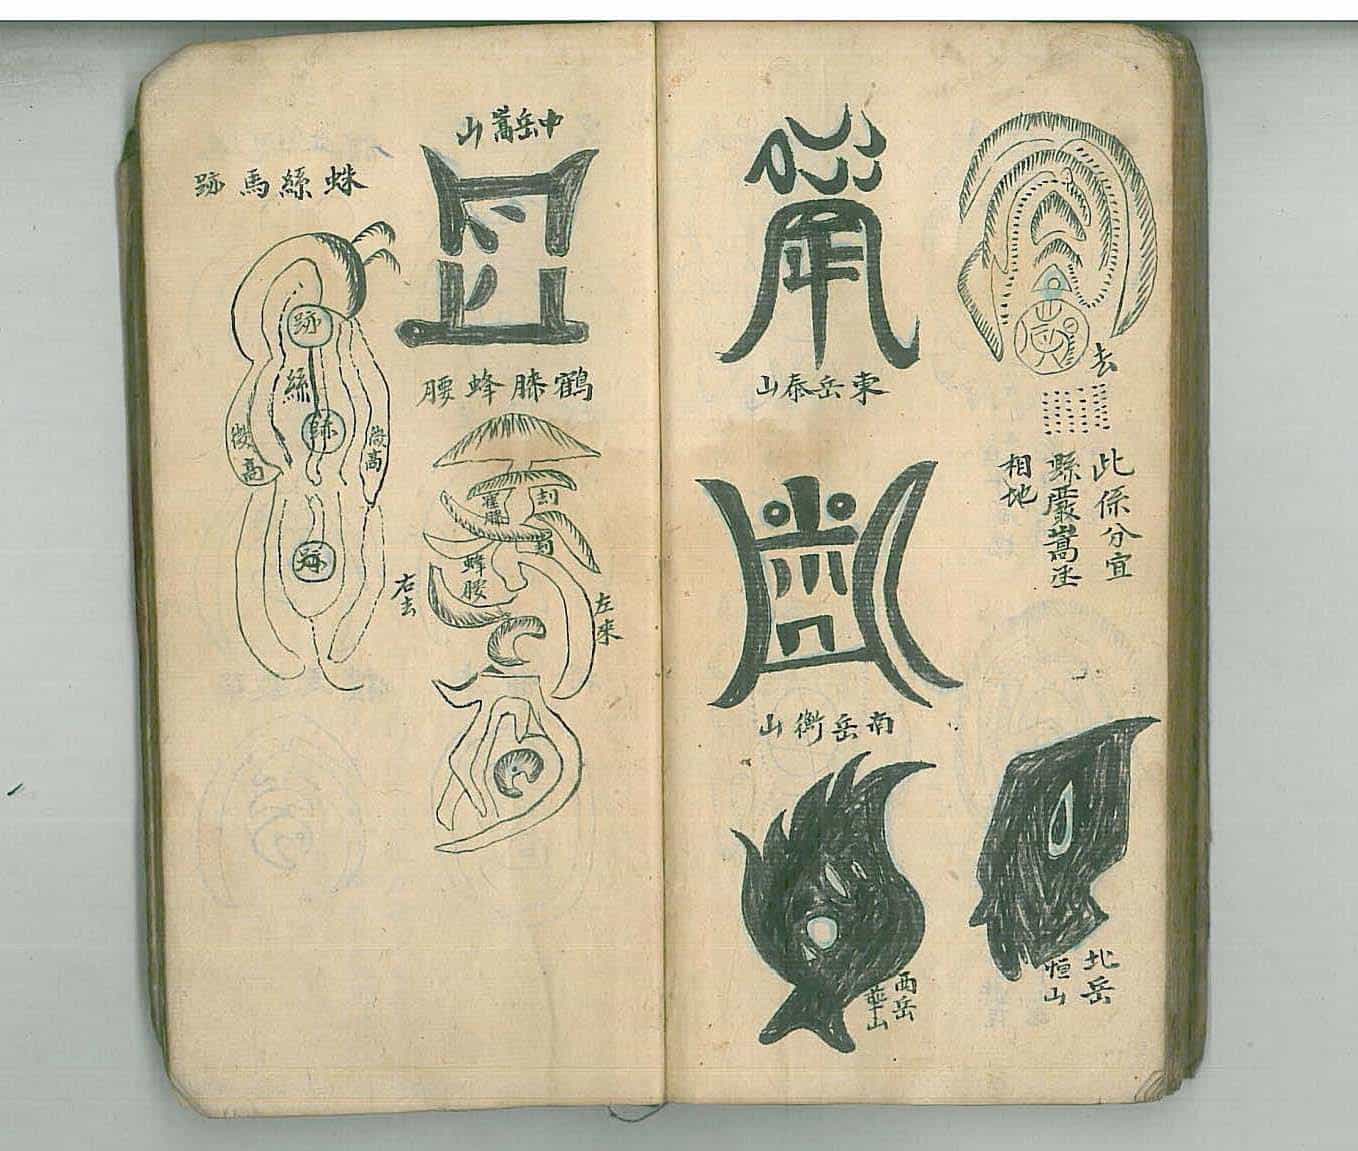 去
此係分宜
縣嚴嵩丞
相地
東岳泰山
南岳衡山
北岳
恒山
西岳
華山
中岳嵩山
鶴膝蜂腰
鶴膝
蜂腰
左來
右去
蛛絲馬跡
跡
絲
跡
微高
微高
跡